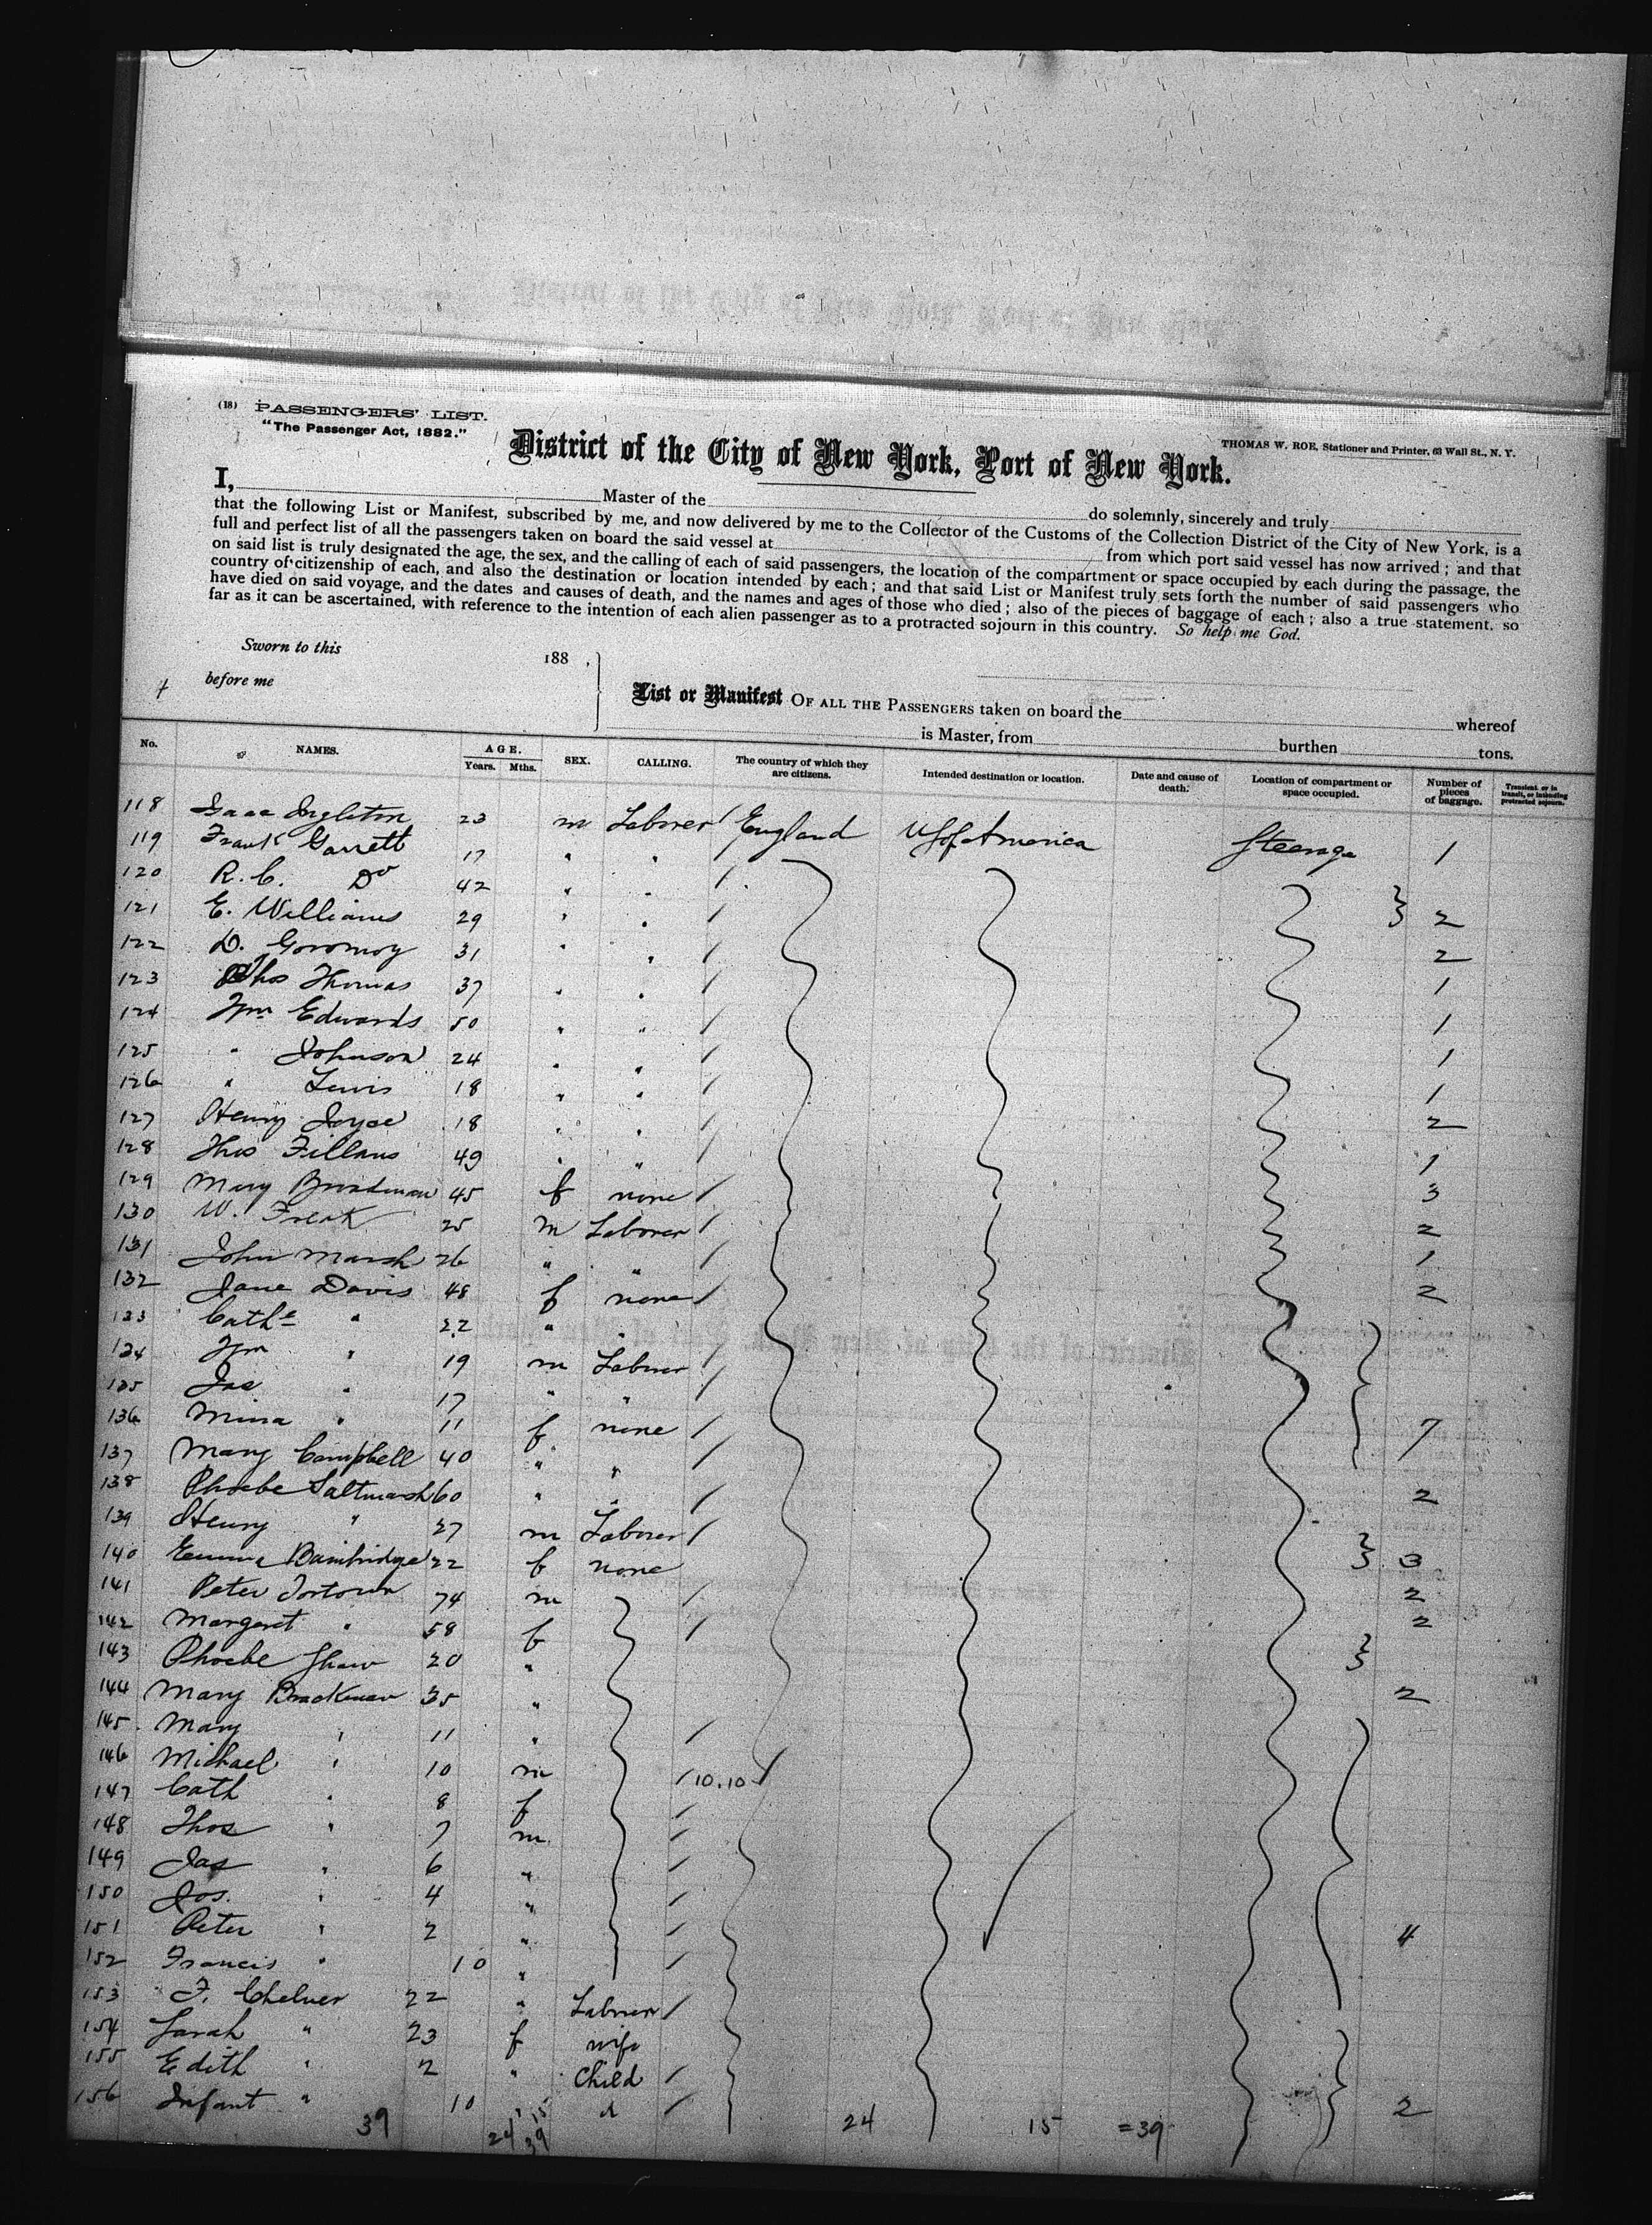 (18) PASSENGERS' LIST.
"The Passenger Act, 1882."
THOMAS W. ROE, Stationer and Printer, 63 Wall St., N. Y.
District of the City of New York, Port of New York.
I, Master of the do solemnly, sincerely and truly
that the following List or Manifest, subscribed by me, and now delivered by me to the Collector of the Customs of the Collection District of the City of New York, is a
full and perfect list of all the passengers taken on board the said vessel at from which port said vessel has now arrived; and that
on said list is truly designated the age, the sex, and the calling of each of said passengers, the location of the compartment or space occupied by each during the passage, the
country of citizenship of each, and also the destination or location intended by each; and that said List or Manifest truly sets forth the number of said passengers who
have died on said voyage, and the dates and causes of death, and the names and ages of those who died; also of the pieces of baggage of each; also a true statement, so
far as it can be ascertained, with reference to the intention of each alien passenger as to a protracted sojourn in this country. So help me God.
Sworn to this 188 ,
before me
List or Manifest OF ALL THE PASSENGERS taken on board the whereof
is Master, from burthen tons.
No. NAMES. AGE. Years. Mths. SEX. CALLING. The country of which they are citizens. Intended destination or location. Date and cause of death. Location of compartment or space occupied. Number of pieces of baggage. Transient, or in transit, or intending protracted sojourn.
118 Isaac Ingleton 23 m Laborer England US of America Steerage 1
119 Frank Garrett 17 " "
120 R. C. Do 42 " "
121 E. Williams 29 " " 2
122 D. 31 " " 2
123 Thos Thomas 37 " " 1
124 Wm Edwards 50 " " 1
125 " Johnson 24 " " 1
126 " Lewis 18 " " 1
127 Henry Joyce 18 " " 2
128 Thos Fillans 49 " " 1
129 Mary 45 f none 3
130 W. Freak 25 m Laborer 2
131 John Marsh 26 " " 1
132 Jane Davis 48 f none 2
133 Cathe " 22 " "
134 Wm " 19 m Laborer
135 Jas " 17 " "
136 Mina " 11 f none 7
137 Mary Campbell 40 " "
138 Phoebe Saltmarsh 60 " " 2
139 Henry " 27 m Laborer
140 Emma Bambridge 22 f none 3
141 Peter 74 m 2
142 Margaret " 58 f 2
143 Phoebe Shaw 20 "
144 Mary Brackman 35 " 2
145 Mary " 11 "
146 Michael " 10 m 10.10
147 Cath " 8 f
148 Thos " 7 m
149 Jas " 6 "
150 Jos. " 4 "
151 Peter " 2 " 4
152 Francis " 10 "
153 F. Chelner 22 " Laborer
154 Sarah " 23 f wife
155 Edith " 2 " Child
156 Infant " 10 2
39 24 15 39 24 15 =39